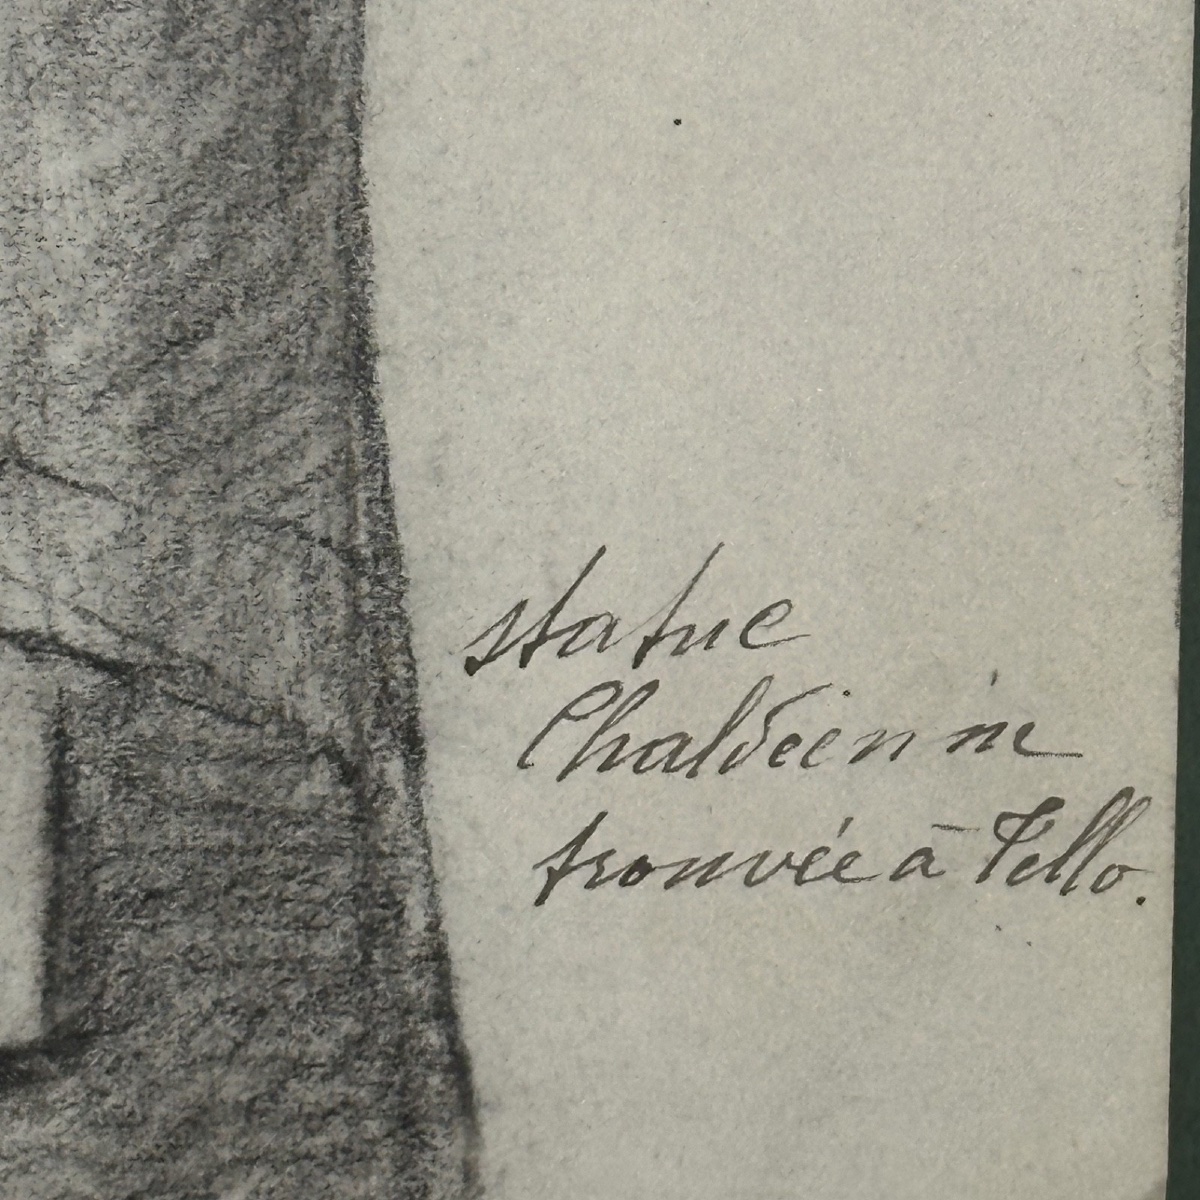 statue
Chaldéenne
trouvée à Tello.